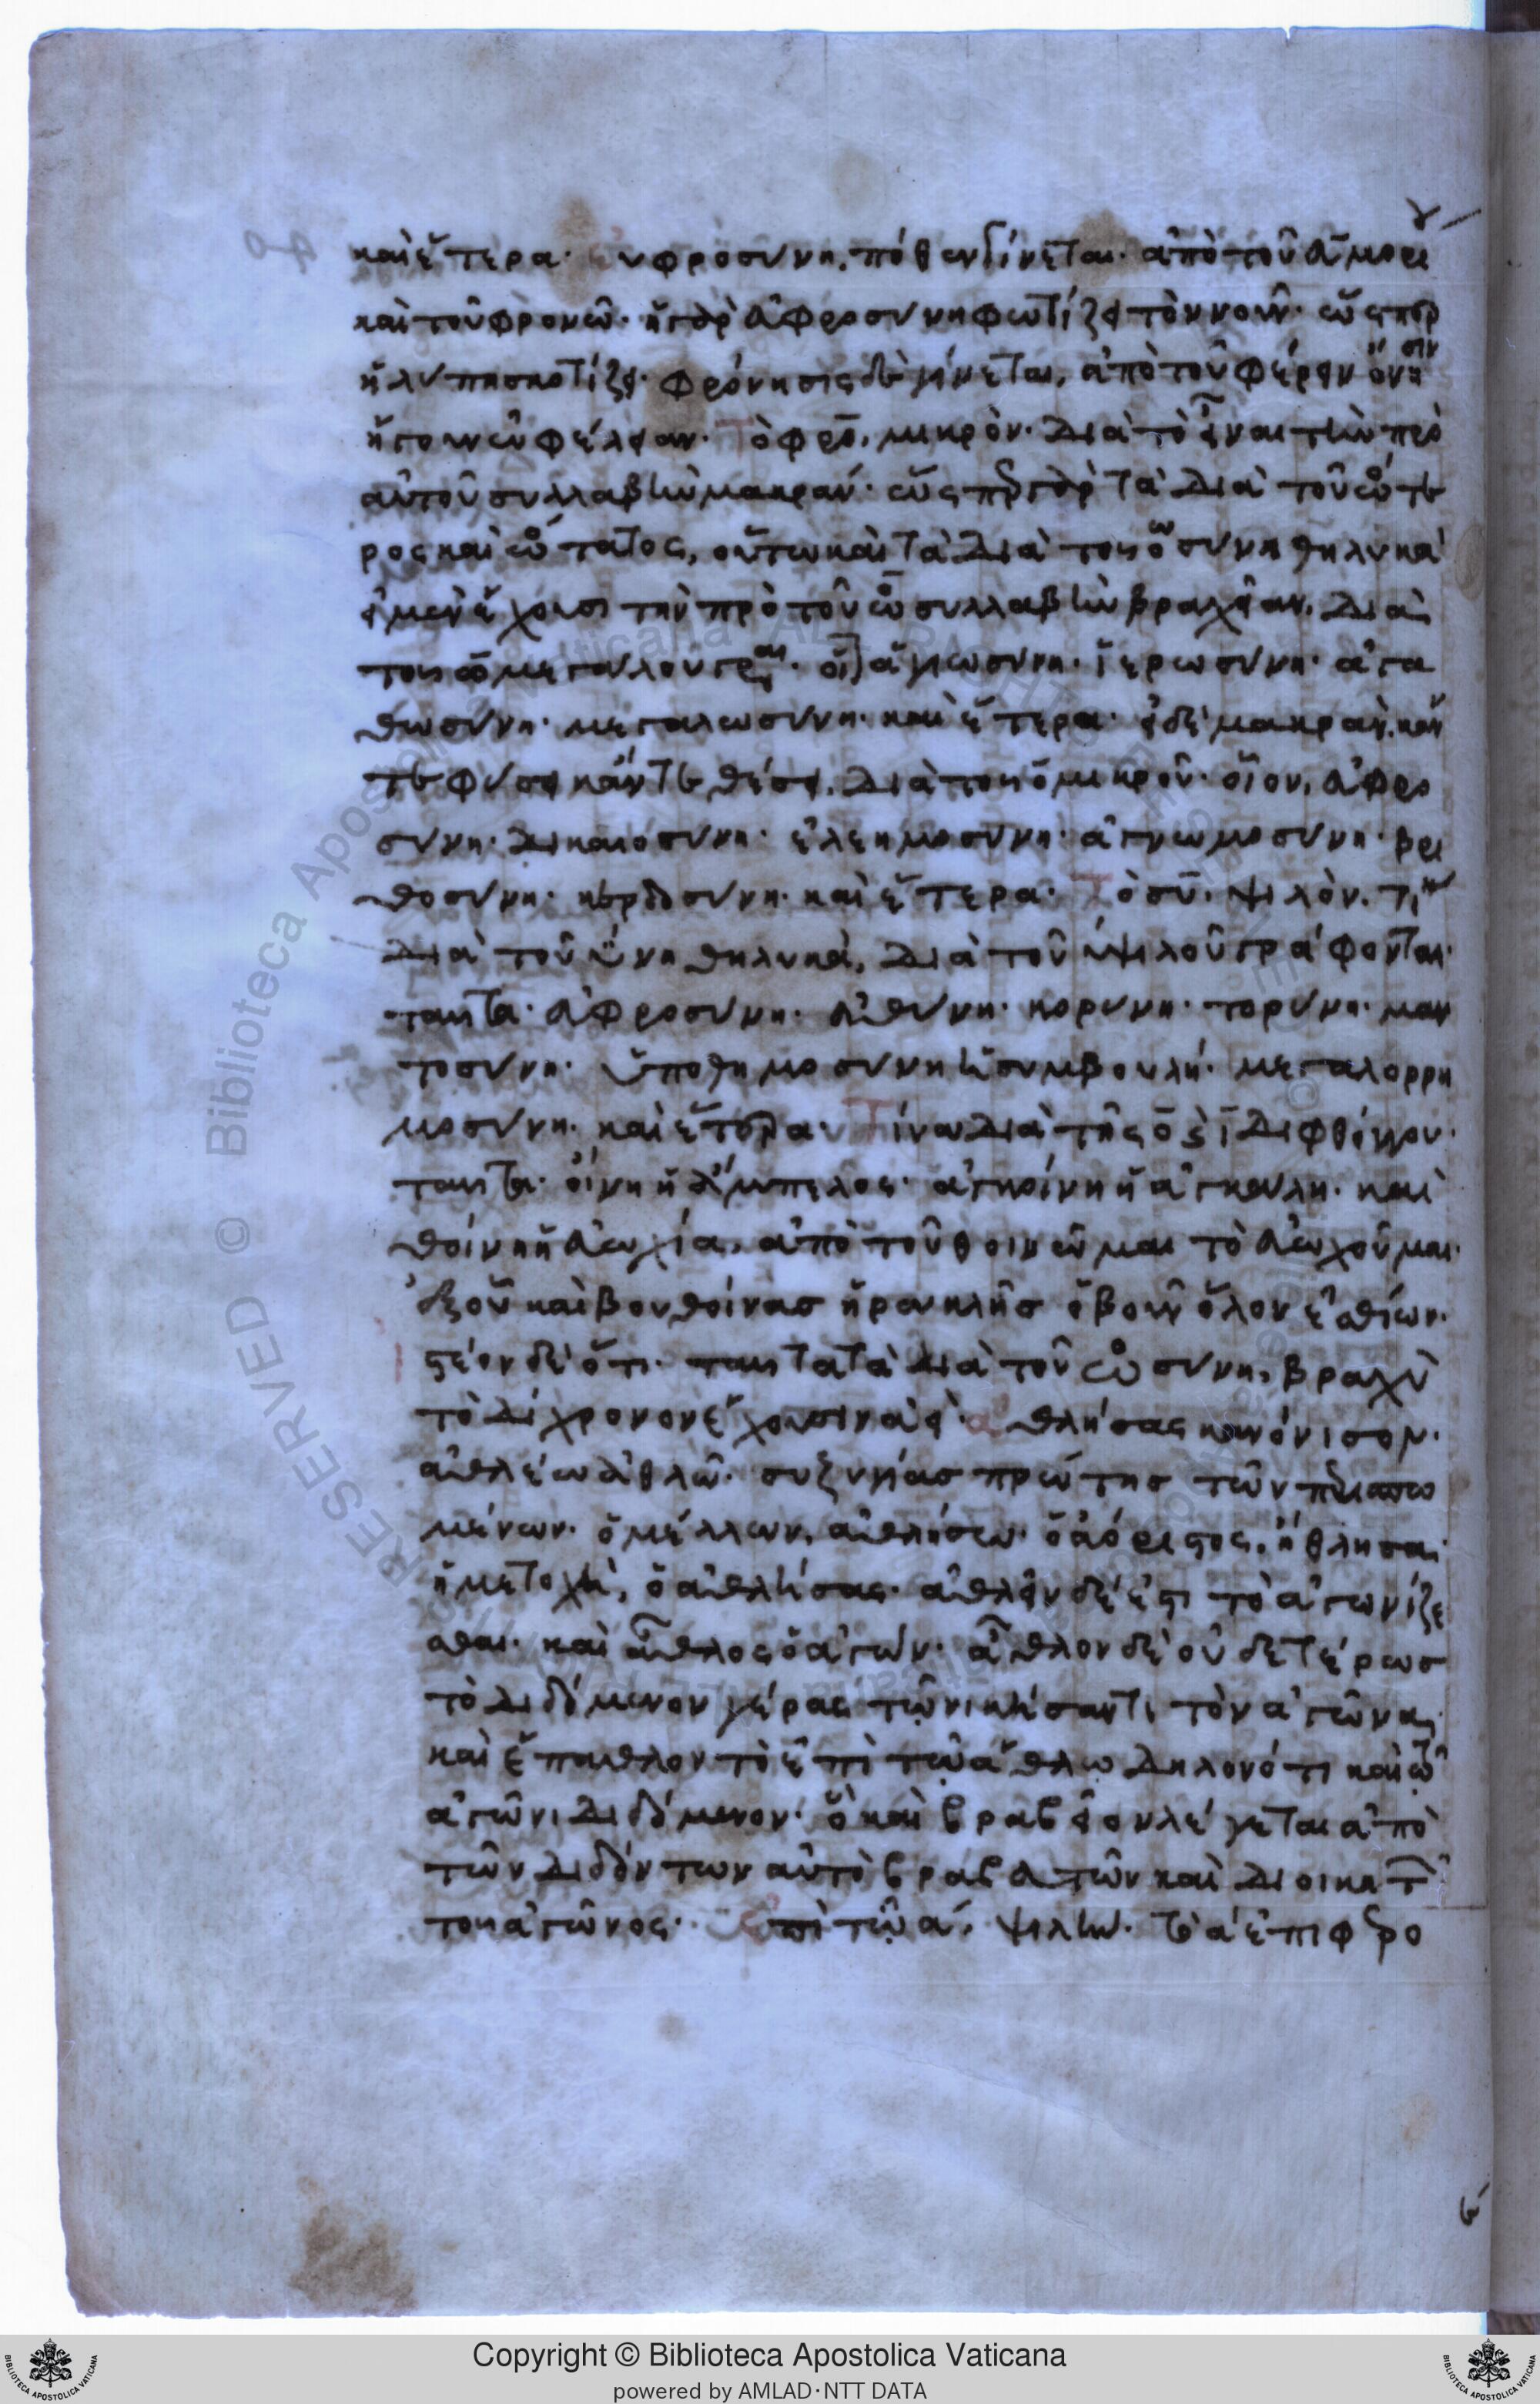 καὶ ἕτερα· εὐφροσύνη, πόθεν γίνεται· ἀπὸ τοῦ εὖ μορι
καὶ τοῦ φρονῶ· ἡ γὰρ εὐφροσύνη φωτίζει τὸν νοῦν· ὥσπερ
ἡ λύπη σκοτίζει· φρόνησις δὲ γίνεται, ἀπὸ τοῦ φέρειν ὄνησιν
ἤγουν ὠφέλειαν· Τὸ φρο, μικρὸν· διὰ τὸ εἶναι τὴν πρὸ
αὐτοῦ συλλαβὴν μακράν· ὥσπερ γὰρ τὰ διὰ τοῦ ὁτε
ρος καὶ ὁτατος, οὕτω καὶ τὰ διὰ τοῦ οσύνη θηλυκὰ
εἰ μὲν ἔχουσι τὴν πρὸ τοῦ ω συλλαβὴν βραχεῖαν, διὰ
τοῦ ω μεγάλου γράφεται· οἷον ἁγιωσύνη· ἱερωσύνη· ἀγα
θωσύνη· μεγαλωσύνη· καὶ ἕτερα· εἰ δὲ μακρὰν, κἄν
τε φύσει κἄν τε θέσει, διὰ τοῦ ο μικροῦ· οἷον, εὐφρο
σύνη· δικαιοσύνη· ἐλεημοσύνη· ἀγνωμοσύνη· βρι
θοσύνη· κερδοσύνη· καὶ ἕτερα· Τὸ συ, ψιλὸν.
διὰ τοῦ ύνη θηλυκὰ, διὰ τοῦ ψιλοῦ γράφονται·
ταῦτα· εὐφροσύνη· εὐθύνη· κορύνη· τορύνη· μαν
τοσύνη· ὑποθημοσύνη ἡ συμβουλή· μεγαλορρη
μοσύνη· καὶ ἕτερα· Τίνα διὰ τῆς ο ϛ ι διφθόγγου·
ταῦτα· οἴνη ἡ ἄμπελος· ἀγκοίνη ἡ ἀγκάλη· καὶ
θοίνη ἡ εὐωχία, ἀπὸ τοῦ θοινῶμαι τὸ εὐωχοῦμαι·
ἐξ οὗ καὶ βουθοίνας ἡρακλῆς ὁ βοῦν ὅλον ἐσθίων·
ϛέον δὲ ὅτι· ταῦτα τὰ διὰ τοῦ οσύνη, βραχὺ
τὸ δίχρονον ἔχουσιν ἀεὶ· ἀθλήσας κανόνισον·
ἀθλέω ἀθλῶ· συζυγίας πρώτης τῶν περισπω
μένων· ὁ μέλλων, ἀθλήσω· ὁ ἀόριϛος, ἤθλησα,
ἡ μετοχὴ, ὁ ἀθλήσας· ἀθλεῖν δέ ἐϛι τὸ ἀγωνίζε
σθαι· καὶ ἆθλος ὁ ἀγών· ἆθλον δὲ οὐδετέρως
τὸ διδόμενον γέρας τῷ νικήσαντι τὸν ἀγῶνα,
καὶ ἔπαθλον τὸ ἐπὶ τῷ ἄθλῳ δηλονότι καὶ τῷ
ἀγῶνι διδόμενον· ὃ καὶ βραβεῖον λέγεται ἀπὸ
τῶν διδόντων αὐτὸ βραβευτῶν καὶ διοικητ
τοῦ ἀγῶνος· Ἐπὶ τῷ α, ψιλὴν· τὸ α ἐπιφερο